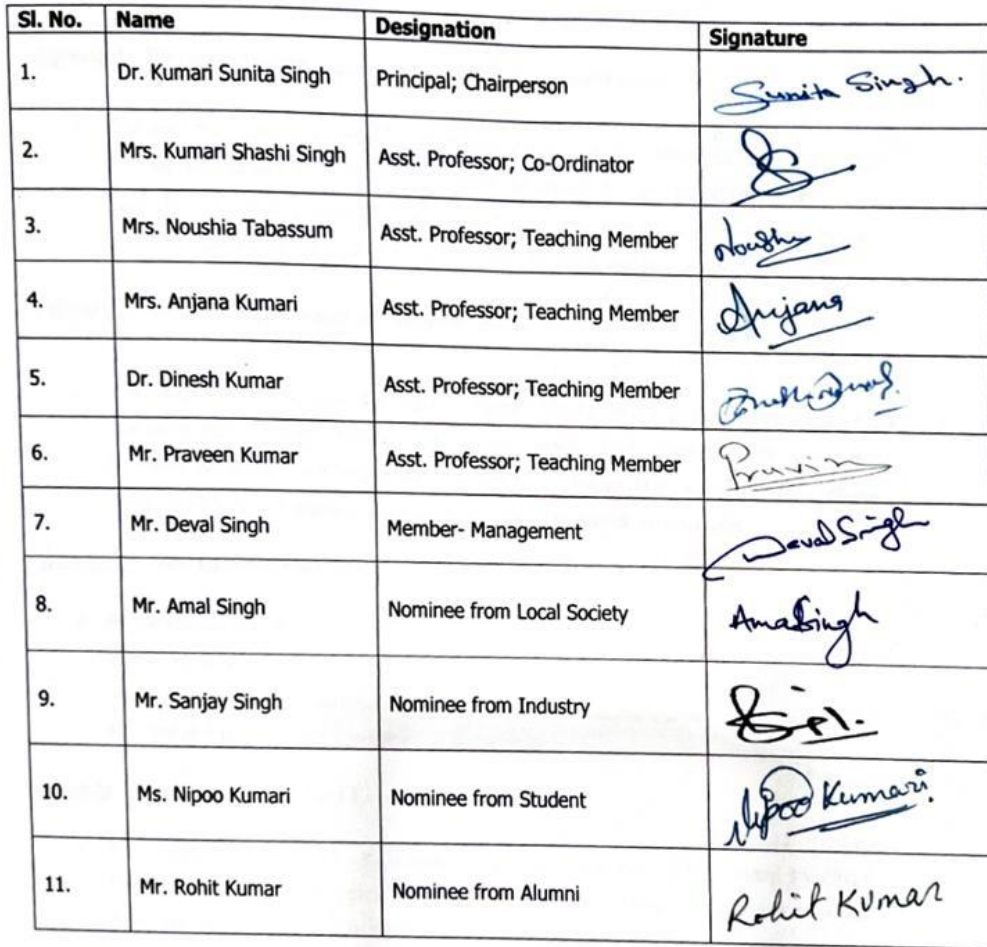 Sl. No. Name Designation Signature
1. Dr. Kumari Sunita Singh Principal; Chairperson Sunita Singh.
2. Mrs. Kumari Shashi Singh Asst. Professor; Co-Ordinator
3. Mrs. Noushia Tabassum Asst. Professor; Teaching Member
4. Mrs. Anjana Kumari Asst. Professor; Teaching Member Anjana
5. Dr. Dinesh Kumar Asst. Professor; Teaching Member
6. Mr. Praveen Kumar Asst. Professor; Teaching Member Pravin
7. Mr. Deval Singh Member- Management Deval Singh
8. Mr. Amal Singh Nominee from Local Society Amal Singh
9. Mr. Sanjay Singh Nominee from Industry
10. Ms. Nipoo Kumari Nominee from Student Nipoo Kumari
11. Mr. Rohit Kumar Nominee from Alumni Rohit Kumar